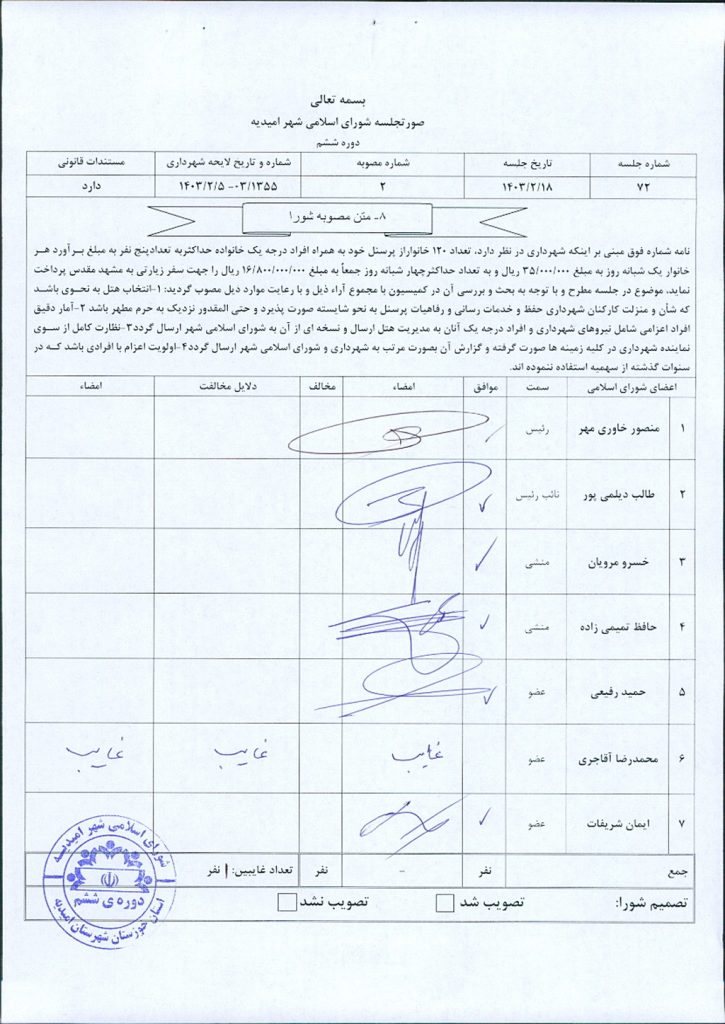 بسمه تعالی
صورتجلسه شورای اسلامی شهر امیدیه
دوره ششم
شماره جلسه تاریخ جلسه شماره مصوبه شماره و تاریخ لایحه شهرداری مستندات قانونی
۷۲ ۱۴۰۳/۲/۱۸ ۲ ۰۳/۱۳۵۵-۱۴۰۳/۲/۵ دارد
۸- متن مصوبه شورا
نامه شماره فوق مبنی بر اینکه شهرداری در نظر دارد، تعداد ۱۲۰ خانواراز پرسنل خود به همراه افراد درجه یک خانواده حداکثربه تعدادپنج نفر به مبلغ برآورد هر
خانوار یک شبانه روز به مبلغ ۳۵/۰۰۰/۰۰۰ ریال و به تعداد حداکثرچهار شبانه روز جمعاً به مبلغ ۱۶/۸۰۰/۰۰۰/۰۰۰ ریال را جهت سفر زیارتی به مشهد مقدس پرداخت
نماید، موضوع در جلسه مطرح و با توجه به بحث و بررسی آن در کمیسیون با مجموع آراء ذیل و با رعایت موارد ذیل مصوب گردید: ۱-انتخاب هتل به نحوی باشد
که شأن و منزلت کارکنان شهرداری حفظ و خدمات رسانی و رفاهیات پرسنل به نحو شایسته صورت پذیرد و حتی المقدور نزدیک به حرم مطهر باشد ۲-آمار دقیق
افراد اعزامی شامل نیروهای شهرداری و افراد درجه یک آنان به مدیریت هتل ارسال و نسخه ای از آن به شورای اسلامی شهر ارسال گردد۳-نظارت کامل از سوی
نماینده شهرداری در کلیه زمینه ها صورت گرفته و گزارش آن بصورت مرتب به شهرداری و شورای اسلامی شهر ارسال گردد۴-اولویت اعزام با افرادی باشد که در
سنوات گذشته از سهمیه استفاده ننموده اند.
اعضای شورای اسلامی سمت موافق امضاء مخالف دلایل مخالفت امضاء
۱ منصور خاوری مهر رئیس
۲ طالب دیلمی پور نائب رئیس
۳ خسرو مرویان منشی
۴ حافظ تمیمی زاده منشی
۵ حمید رفیعی عضو
۶ محمدرضا آقاجری عضو غایب غایب غایب
۷ ایمان شریفات عضو
جمع نفر - نفر تعداد غایبین: ۱ نفر
تصمیم شورا: تصویب شد تصویب نشد
شورای اسلامی شهر امیدیه
دوره ی ششم
استان خوزستان شهرستان امیدیه